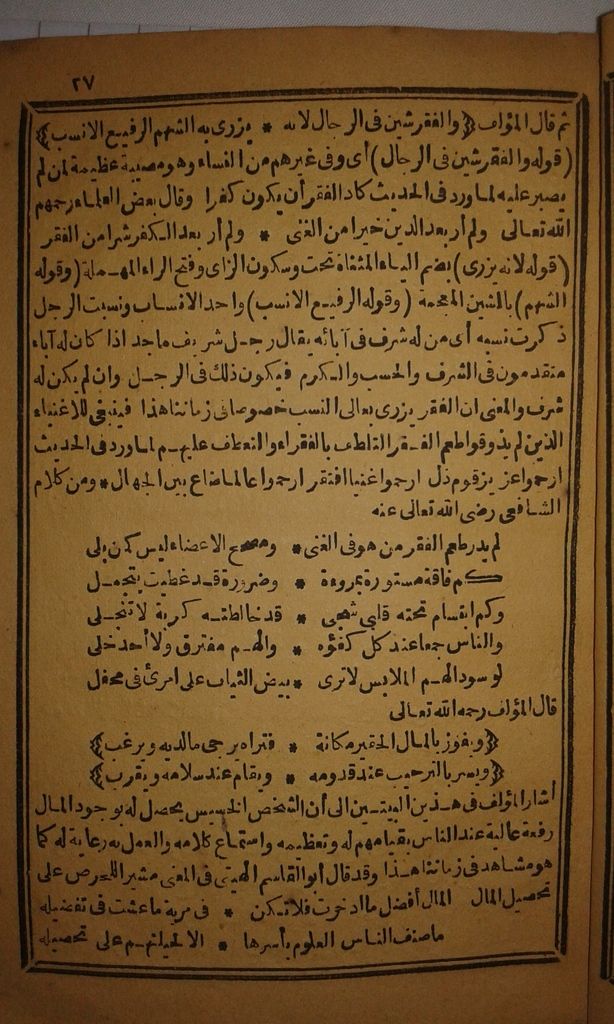 ٢٧
ثم قال المؤلف ﴿والفقر شين فى الرجال لانه * يزرى به الشهم الرفيع الانسب﴾
(قوله والفقر شين فى الرجال) أى وفى غيرهم من النساء وهو مصيبة عظيمة لمن لم
يصبر عليه لما ورد فى الحديث كاد الفقر أن يكون كفرا وقال بعض العلماء رحمهم
الله تعالى ولم أر بعد الدين خيرا من الغنى * ولم أر بعد الكفر شرا من الفقر
(قوله لانه يزرى) بضم الياء المثناة تحت وسكون الزاى وفتح الراء المهملة (وقوله
الشهم) بالشين المعجمة (وقوله الرفيع الانسب) واحد الانساب ونسبت الرجل
ذكرت نسبه أى من له شرف فى آبائه يقال رجل شريف ماجد اذا كان له آباء
متقدمون فى الشرف والحسب والكرم فيكون ذلك فى الرجل وان لم يكن له
شرف والمعنى ان الفقر يزرى بعالى النسب خصوصا فى زماننا هذا فينبغى للاغنياء
الذين لم يذوقوا طعم الفقر التلطف بالفقراء والتعطف عليهم لما ورد فى الحديث
ارحموا عزيز قوم ذل ارحموا غنيا افتقر ارحموا عالما ضاع بين الجهال * ومن كلام
الشافعى رضى الله تعالى عنه
لم يدر طعم الفقر من هو فى الغنى * ومصحح الاعضاء ليس كمن بلى
كم فاقة مستورة بمروءة * وضرورة قد غطيت بتجمل
وكم ابتسام تحته قلب شجى * قد خالطته كربة لا تنجلى
والناس جمعا عند كل كفؤه * والهم مفترق ولا أحد خلى
لو سود الهم الملابس لا ترى * بيض الثياب على امرئ فى محفل
قال المؤلف رحمه الله تعالى
﴿ويفوز بالمال الحقير مكانة * فتراه يرجى ما لديه ويرغب﴾
﴿ويسر بالترحيب عند قدومه * ويقام عند سلامه ويقرب﴾
أشار المؤلف فى هذين البيتين الى أن الشخص الخسيس يحصل له بوجود المال
رفعة عالية عند الناس بقيامهم له وتعظيمه واستماع كلامه والعمل به رعاية له كما
هو مشاهد فى زماننا هذا وقد قال أبو القاسم الهيتى فى المغنى مشيرا للحرص على
تحصيل المال المال أفضل ما ادخرت فلا تكن * فى مرية ما عشت فى تفضيله
ما صنف الناس العلوم بأسرها * الا لحيلتهم على تحصيله